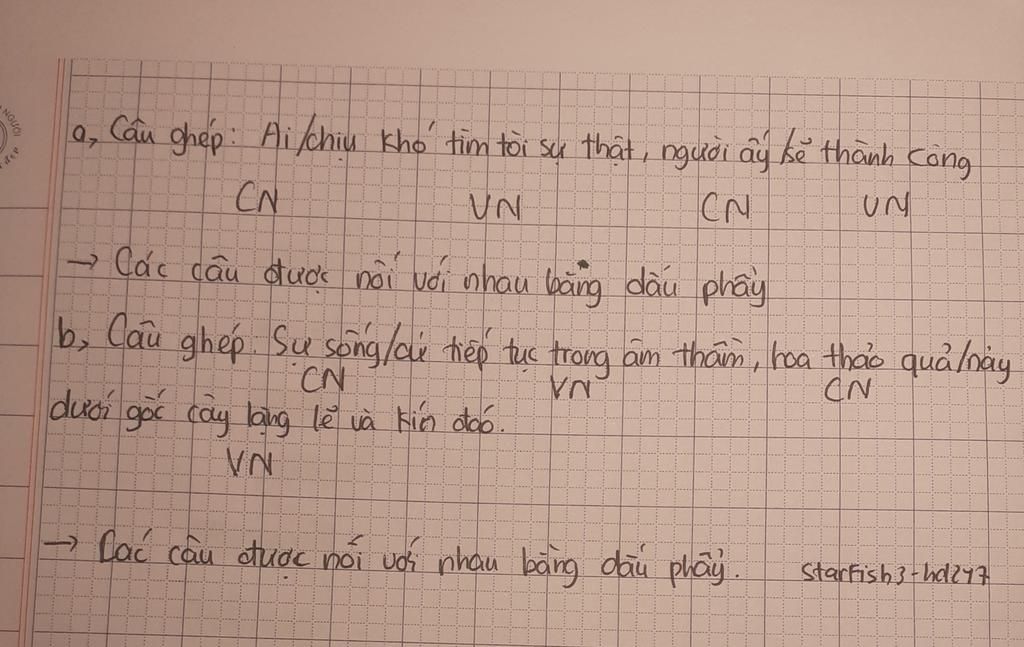 NGƯỜI
đẹp
a, Câu ghép: Ai/chịu khó tìm tòi sự thật, người ấy/sẽ thành công
CN VN CN VN
→ Các câu được nối với nhau bằng dấu phẩy
b, Câu ghép: Sự sống/cứ tiếp tục trong âm thầm, hoa thảo quả/nảy
CN VN CN
dưới gốc cây lặng lẽ và kín đáo.
VN
→ Các câu được nối với nhau bằng dấu phẩy. starfish3-hd247